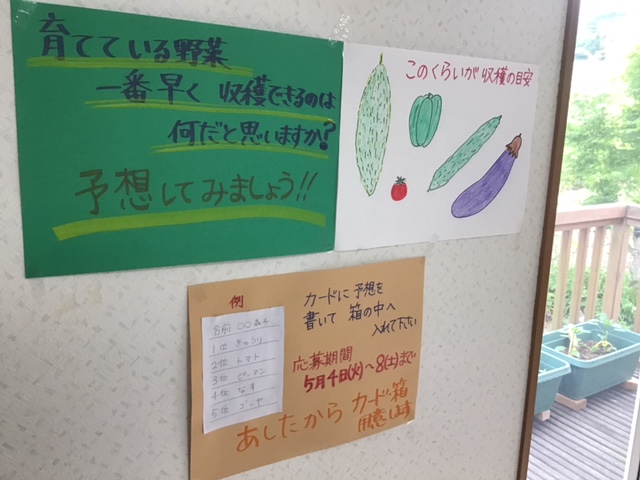 育てている野菜
一番早く 収穫できるのは
何だと思いますか?
予想してみましょう!!
このくらいが 収穫の目安
例
名前 〇〇あ子
1位 きゅうり
2位 トマト
3位 ピーマン
4位 なす
5位 ゴーヤ
カードに予想を
書いて 箱の中へ
入れて下さい
応募期間
5月4日(火)〜8(土)まで
あしたから カード・箱
用意します